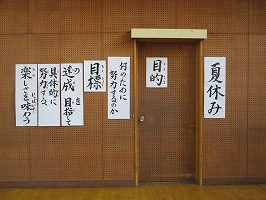 夏休み
目的
何のために
努力するのか
目標
達成目指して
具体的に
努力する。
楽しさを味わう